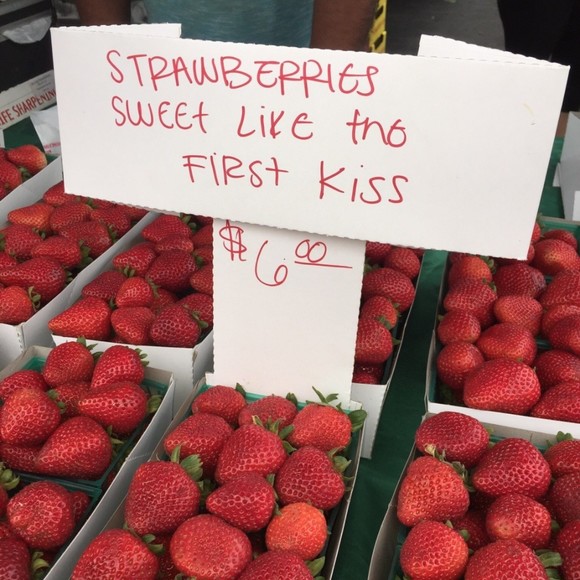 IFE SHARPENIN
STRAWBERRIES
SWEEt LIKE thE
FIRSt KISS
$6.00